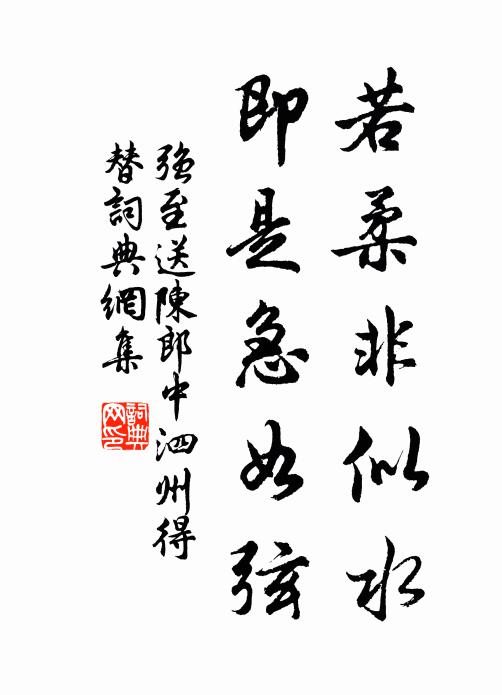 若柔非似水
即是急如弦
強至送陳郎中泗州得
替詞典網集
詞典网印